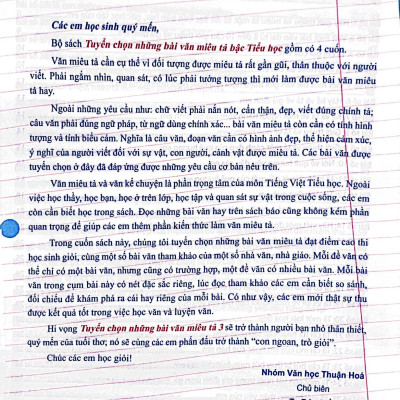 Các em học sinh quý mến,
Bộ sách Tuyển chọn những bài văn miêu tả bậc Tiểu học gồm có 4 cuốn.
Văn miêu tả cần cụ thể vì đối tượng được miêu tả rất gần gũi, thân thuộc với người
viết. Phải ngắm nhìn, quan sát, có lúc phải tưởng tượng thì mới làm được bài văn miêu
tả hay.
Ngoài những yêu cầu như: chữ viết phải nắn nót, cẩn thận, đẹp, viết đúng chính tả;
câu văn phải đúng ngữ pháp, từ ngữ dùng chính xác... bài văn miêu tả còn cần có tính hình
tượng và tính biểu cảm. Nghĩa là câu văn, đoạn văn cần có hình ảnh đẹp, thể hiện cảm xúc,
ý nghĩ của người viết đối với sự vật, con người, cảnh vật được miêu tả. Các bài văn được
tuyển chọn ở đây đã đáp ứng được những yêu cầu cơ bản nêu trên.
Văn miêu tả và văn kể chuyện là phần trọng tâm của môn Tiếng Việt Tiểu học. Ngoài
việc học thầy, học bạn, học ở trên lớp, học tập và quan sát sự vật trong cuộc sống, các em
còn cần biết học trong sách. Đọc những bài văn hay trên sách báo cũng không kém phần
quan trọng để giúp các em thêm phần kiến thức làm văn miêu tả.
Trong cuốn sách này, chúng tôi tuyển chọn những bài văn miêu tả đạt điểm cao thi
học sinh giỏi, cùng một số bài văn tham khảo của một số nhà văn, nhà giáo. Mỗi đề văn có
thể chỉ có một bài văn, nhưng cũng có trường hợp, một đề văn có nhiều bài văn. Mỗi bài
văn trong cụm bài này có nét đặc sắc riêng, lúc đọc tham khảo các em cần biết so sánh,
đối chiếu để khám phá ra cái hay riêng của mỗi bài. Có như vậy, các em mới thật sự thu
được kết quả tốt trong việc học văn và luyện văn.
Hi vọng Tuyển chọn những bài văn miêu tả 3 sẽ trở thành người bạn nhỏ thân thiết,
quý mến của tuổi thơ; nó sẽ cùng các em phấn đấu trở thành "con ngoan, trò giỏi".
Chúc các em học giỏi!
Nhóm Văn học Thuận Hoá
Chủ biên